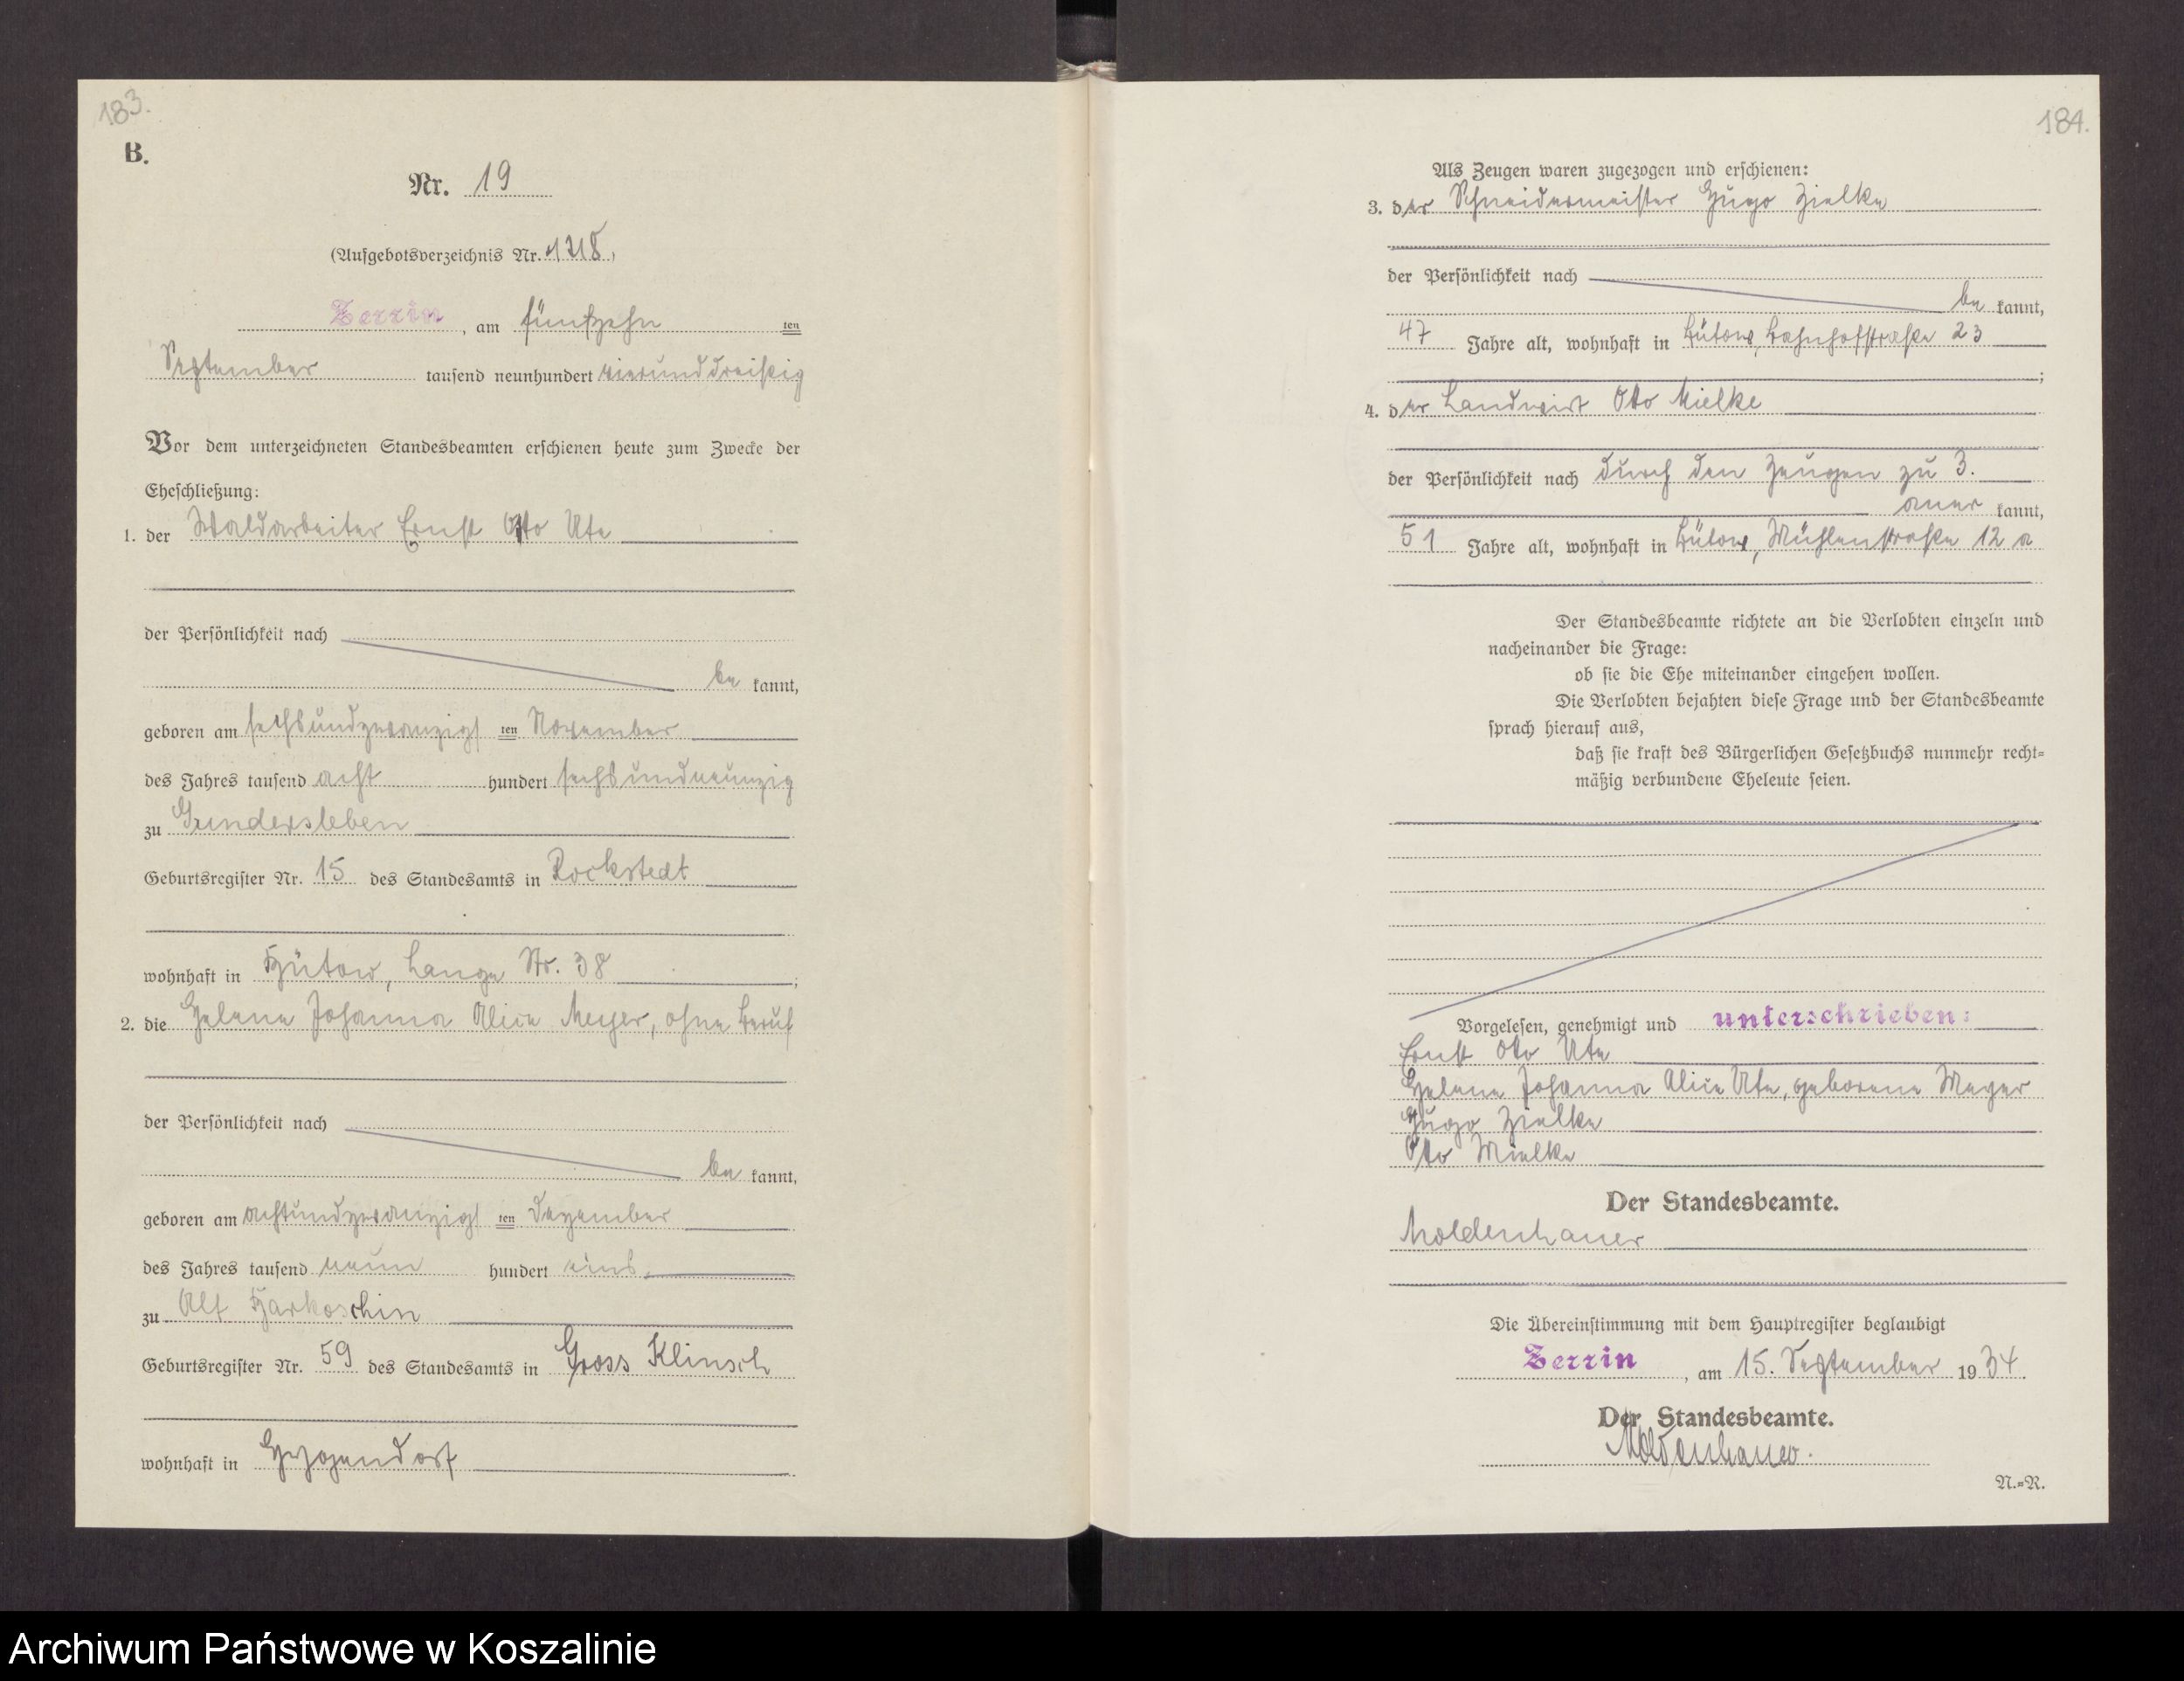 183.
B.
Nr. 19
(Aufgebotsverzeichnis Nr.
Zerrin, am fünfzehn ten
September tausend neunhundert vierunddreißig
Vor dem unterzeichneten Standesbeamten erschienen heute zum Zwecke der
Eheschließung:
1. der Waldarbeiter Ernst Otto Ute
der Persönlichkeit nach
be kannt,
geboren am sechsundzwanzigs ten November
des Jahres tausend acht hundert sechsundneunzig
zu Gundersleben
Geburtsregister Nr. 15 des Standesamts in Rockstedt
wohnhaft in Bütow, Lange Str. 38;
2. die Helene Johanna Alice Meyer, ohne Beruf
der Persönlichkeit nach
be kannt,
geboren am achtundzwanzigs ten Dezember
des Jahres tausend neun hundert eins.
zu Alt Barkoschin
Geburtsregister Nr. 59 des Standesamts in Gross Klinsch
wohnhaft in
184.
Als Zeugen waren zugezogen und erschienen:
3. der Schneidermeister Hugo Zielke
der Persönlichkeit nach
be kannt,
47 Jahre alt, wohnhaft in Bütow, Bahnhofstraße 23
;
4. der Landwirt Otto Mielke
der Persönlichkeit nach durch den Zeugen zu 3.
aner kannt,
51 Jahre alt, wohnhaft in Bütow, Mühlenstraße 12 a
Der Standesbeamte richtete an die Verlobten einzeln und
nacheinander die Frage:
ob sie die Ehe miteinander eingehen wollen.
Die Verlobten bejahten diese Frage und der Standesbeamte
sprach hierauf aus,
daß sie kraft des Bürgerlichen Gesetzbuchs nunmehr recht=
mäßig verbundene Eheleute seien.
Vorgelesen, genehmigt und unterschrieben:
Ernst Otto Ute
Helene Johanna Alice Ute, geborene Meyer
Hugo Zielke
Otto Mielke
Der Standesbeamte.
Moldenhauer
Die Übereinstimmung mit dem Hauptregister beglaubigt
Zerrin, am 15. September 1934.
Der Standesbeamte.
Moldenhauer.
N.=R.
Archiwum Państwowe w Koszalinie